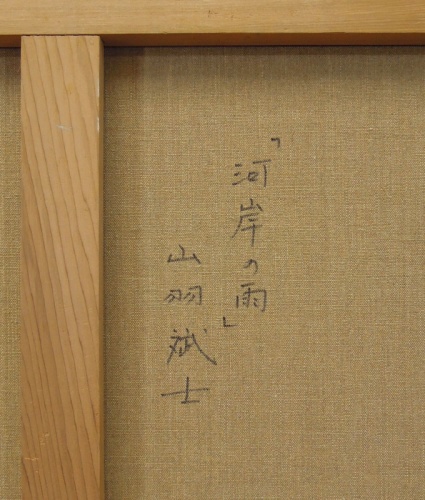 「河岸の雨」
山羽斌士